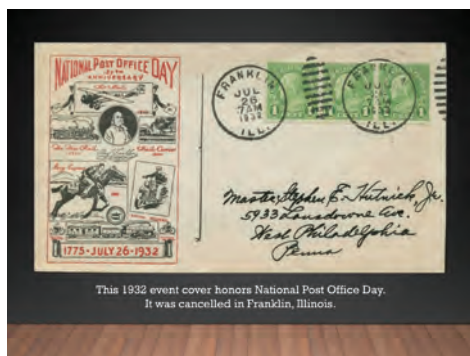 NATIONAL POST OFFICE DAY
ANNIVERSARY
Air Mail
Mail Carrier
Pony Express
1775 - JULY 26 - 1932
FRANKLIN
JUL
26
7AM
1932
ILL.
FRANKLIN
ILL.
1
1
1
Master Stephen E. Hutnick, Jr.
5933 Lansdowne Ave.
West Philadelphia
Penna
This 1932 event cover honors National Post Office Day.
It was cancelled in Franklin, Illinois.